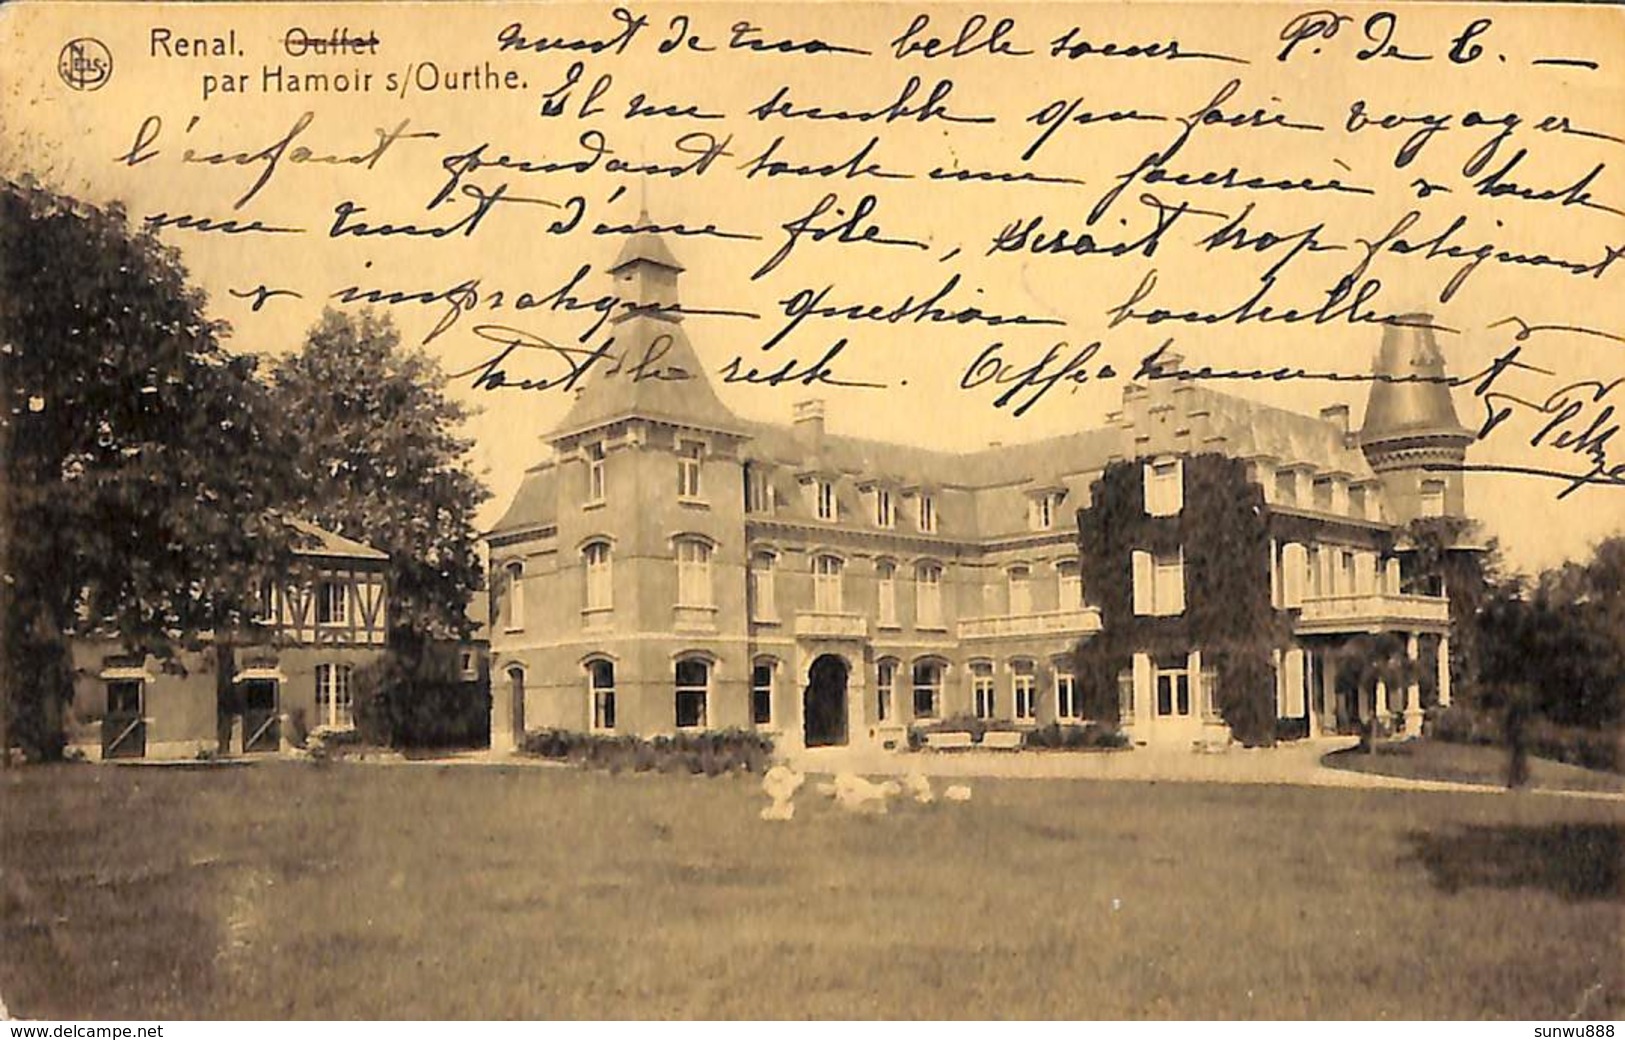 Renal. Ouffet
par Hamoir s/Ourthe.
NELS
ment de ma belle soeur P. de C. —
Il me semble que faire voyager
l'enfant pendant toute une journée & toute
une nuit d'une file, serait trop fatigant
& impratique question bouteilles &
tout le reste. Affectionnément
www.delcampe.net
sunwu888